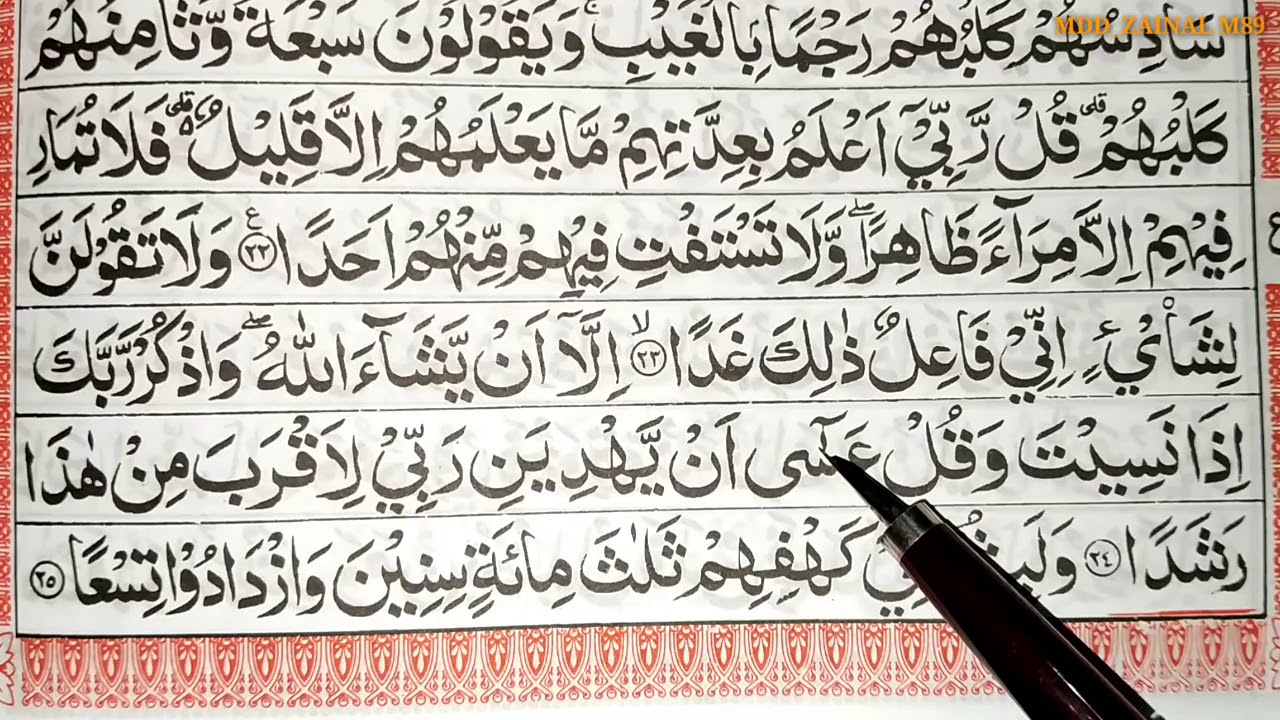 MDD ZAINAL M89
سَادِسُهُمْ كَلْبُهُمْ رَجْمًۢا بِالْغَيْبِ ۚ وَيَقُوْلُوْنَ سَبْعَةٌ وَّثَامِنُهُمْ
كَلْبُهُمْ ؕ قُلْ رَّبِّيْۤ اَعْلَمُ بِعِدَّتِهِمْ مَّا يَعْلَمُهُمْ اِلَّا قَلِيْلٌ ۫ۥ فَلَا تُمَارِ
فِيْهِمْ اِلَّا مِرَآءً ظَاهِرًا ۪ وَّلَا تَسْتَفْتِ فِيْهِمْ مِّنْهُمْ اَحَدًا ﴿۲۲﴾ وَلَا تَقُوْلَنَّ
لِشَا۟يْءٍ اِنِّيْ فَاعِلٌ ذٰلِكَ غَدًا ﴿۲۳﴾ اِلَّاۤ اَنْ يَّشَآءَ اللّٰهُ ۫ وَاذْكُرْ رَّبَّكَ
اِذَا نَسِيْتَ وَقُلْ عَسٰۤى اَنْ يَّهْدِيَنِ رَبِّيْ لِاَقْرَبَ مِنْ هٰذَا
رَشَدًا ﴿۲٤﴾ كَهْفِهِمْ ثَلٰثَ مِائَةٍ سِنِيْنَ وَازْدَادُوْا تِسْعًا ﴿۲۵﴾
ع